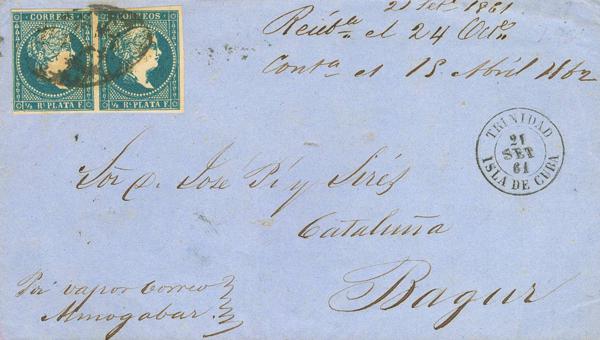 CORREOS CORREOS
½ Rl. PLATA F. ½ Rl. PLATA F.
21 Set. 1861
Recibda el 24 Octe
Conta el 15 Abril 1862
TRINIDAD
21
SET
61
ISLA DE CUBA
Sor D. Jose Pí y Sirés
Cataluña
Bagur
Por vapor Correo
Almogabar.